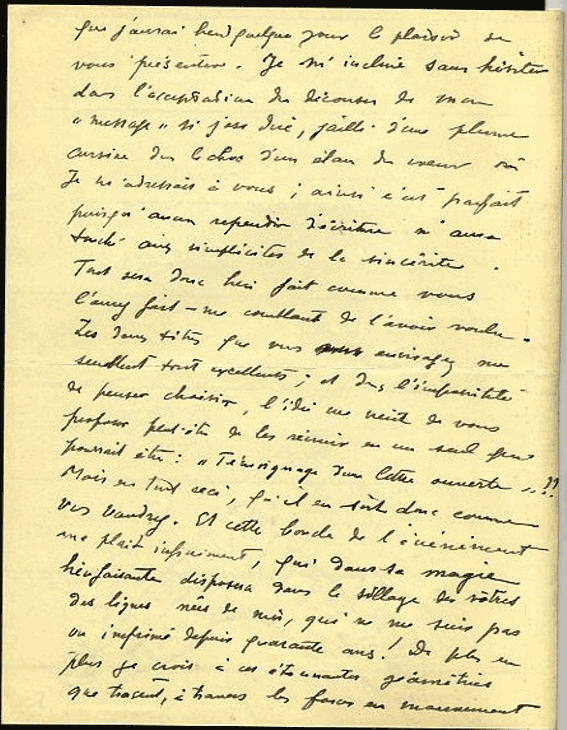 que j'aurai bien quelque jour le plaisir de
vous présenter. Je m'incline sans hésiter
dans l'acceptation du découser de mon
"message" si j'ose dire, jailli d'une plume
cursive dans le choc d'un élan du coeur où
Je m'adressais à vous ; ainsi c'est parfait
puisqu'aucun repentir d'écriture n'aura
touché aux simplicités de la sincérité.
Tout sera donc bien fait comme vous
l'aurez fait – me comblant de l'avoir voulu.
Les deux titres que vous envisagez me
semblent tout excellents ; et dans l'impossibilité
de penser choisir, l'idée me vient de vous
proposer peut-être de les réunir en un seul qui
pourrait être : "Témoignage d'une lettre ouverte" ..??
Mais en tout ceci, qu'il en soit donc comme
vous voudrez. Et cette boucle de l'événement
me plait infiniment, qui dans sa magie
bienfaisante disposera dans le sillage des vôtres
des lignes nées de moi, qui ne me suis pas
vu imprimé depuis quarante ans ! De plus en
plus je crois à ces étonnantes géométries
que tracent, à travers les forces en mouvement